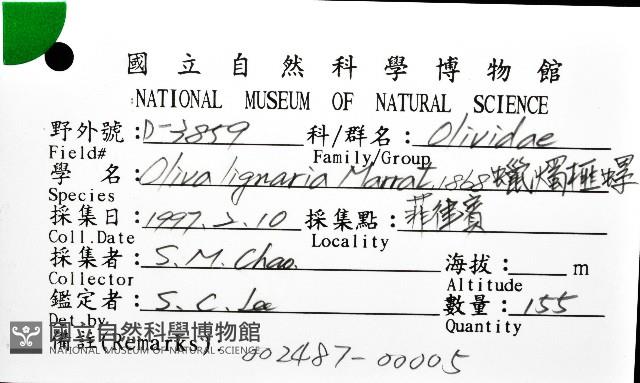 國立自然科學博物館
NATIONAL MUSEUM OF NATURAL SCIENCE
野外號:D-3859 科/群名:Olividae
Field# Family/Group
學 名:Oliva lignaria Marrat, 1868 蠟燭榧螺
Species
採集日:1997.2.10 採集點:菲律賓
Coll.Date Locality
採集者:S. M. Chao. 海拔: m
Collector Altitude
鑑定者:S. C. Lee 數量:155
Det.by Quantity
國立自然科學博物館
NATIONAL MUSEUM OF NATURAL SCIENCE
備註(Remarks): 002487-00005